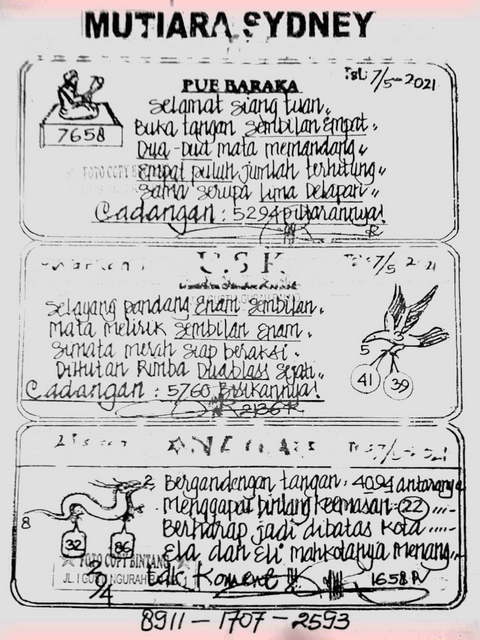 MUTIARA SYDNEY
Tgl: 7/5-2021
PUE BARAKA
Selamat siang tuan,,
Buka tangan Sembilan Empat,,
Dua-Duit mata memandang,,
7658
Empat puluh jumlah terhitung,,
Sama serupa Lima Delapan,,
Cadangan: 5294 pilarannya!
7/5-2021
U S K
Selayang pandang Enam Sembilan.
Mata melirik Sembilan Enam.
Simata merah siap beraksi.
Dihutan Rimba Duablas Sejati..
Cadangan: 5760 Bisikannya!
2136 R
5
41 39
Bergandengan tangan: 4094 antaranya
Menggapai bintang keemasan: 22
Berharap jadi dibatas kota
Ela dan Eli mahkotanya menang
2
8
32 86
FOTO COPY BINTANG
JL I GUSTI NGURAH
1658 R
8911 - 1707 - 2593